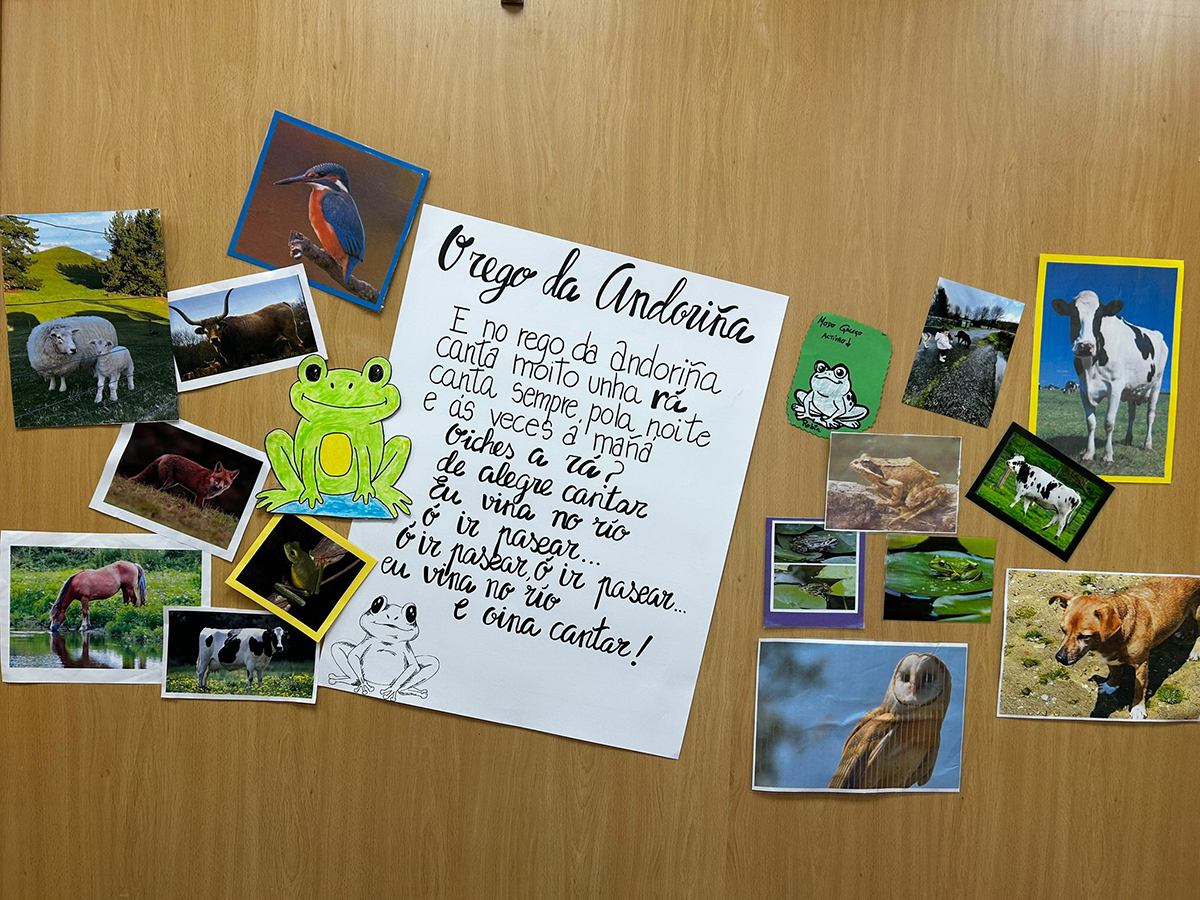 O rego da Andoriña
E no rego da andoriña
canta moito unha rá
canta sempre pola noite
e ás veces á mañá
Oiches a rá?
de alegre cantar
Eu vina no río
ó ir pasear...
Ó ir pasear, ó ir pasear...
eu vina no río
e oina cantar!
Modo Galego
Activo